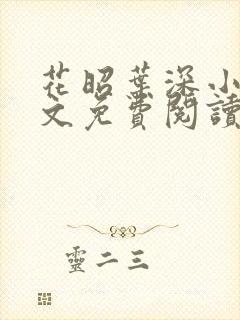 花昭葉深小
文免費閱讀
靈二三